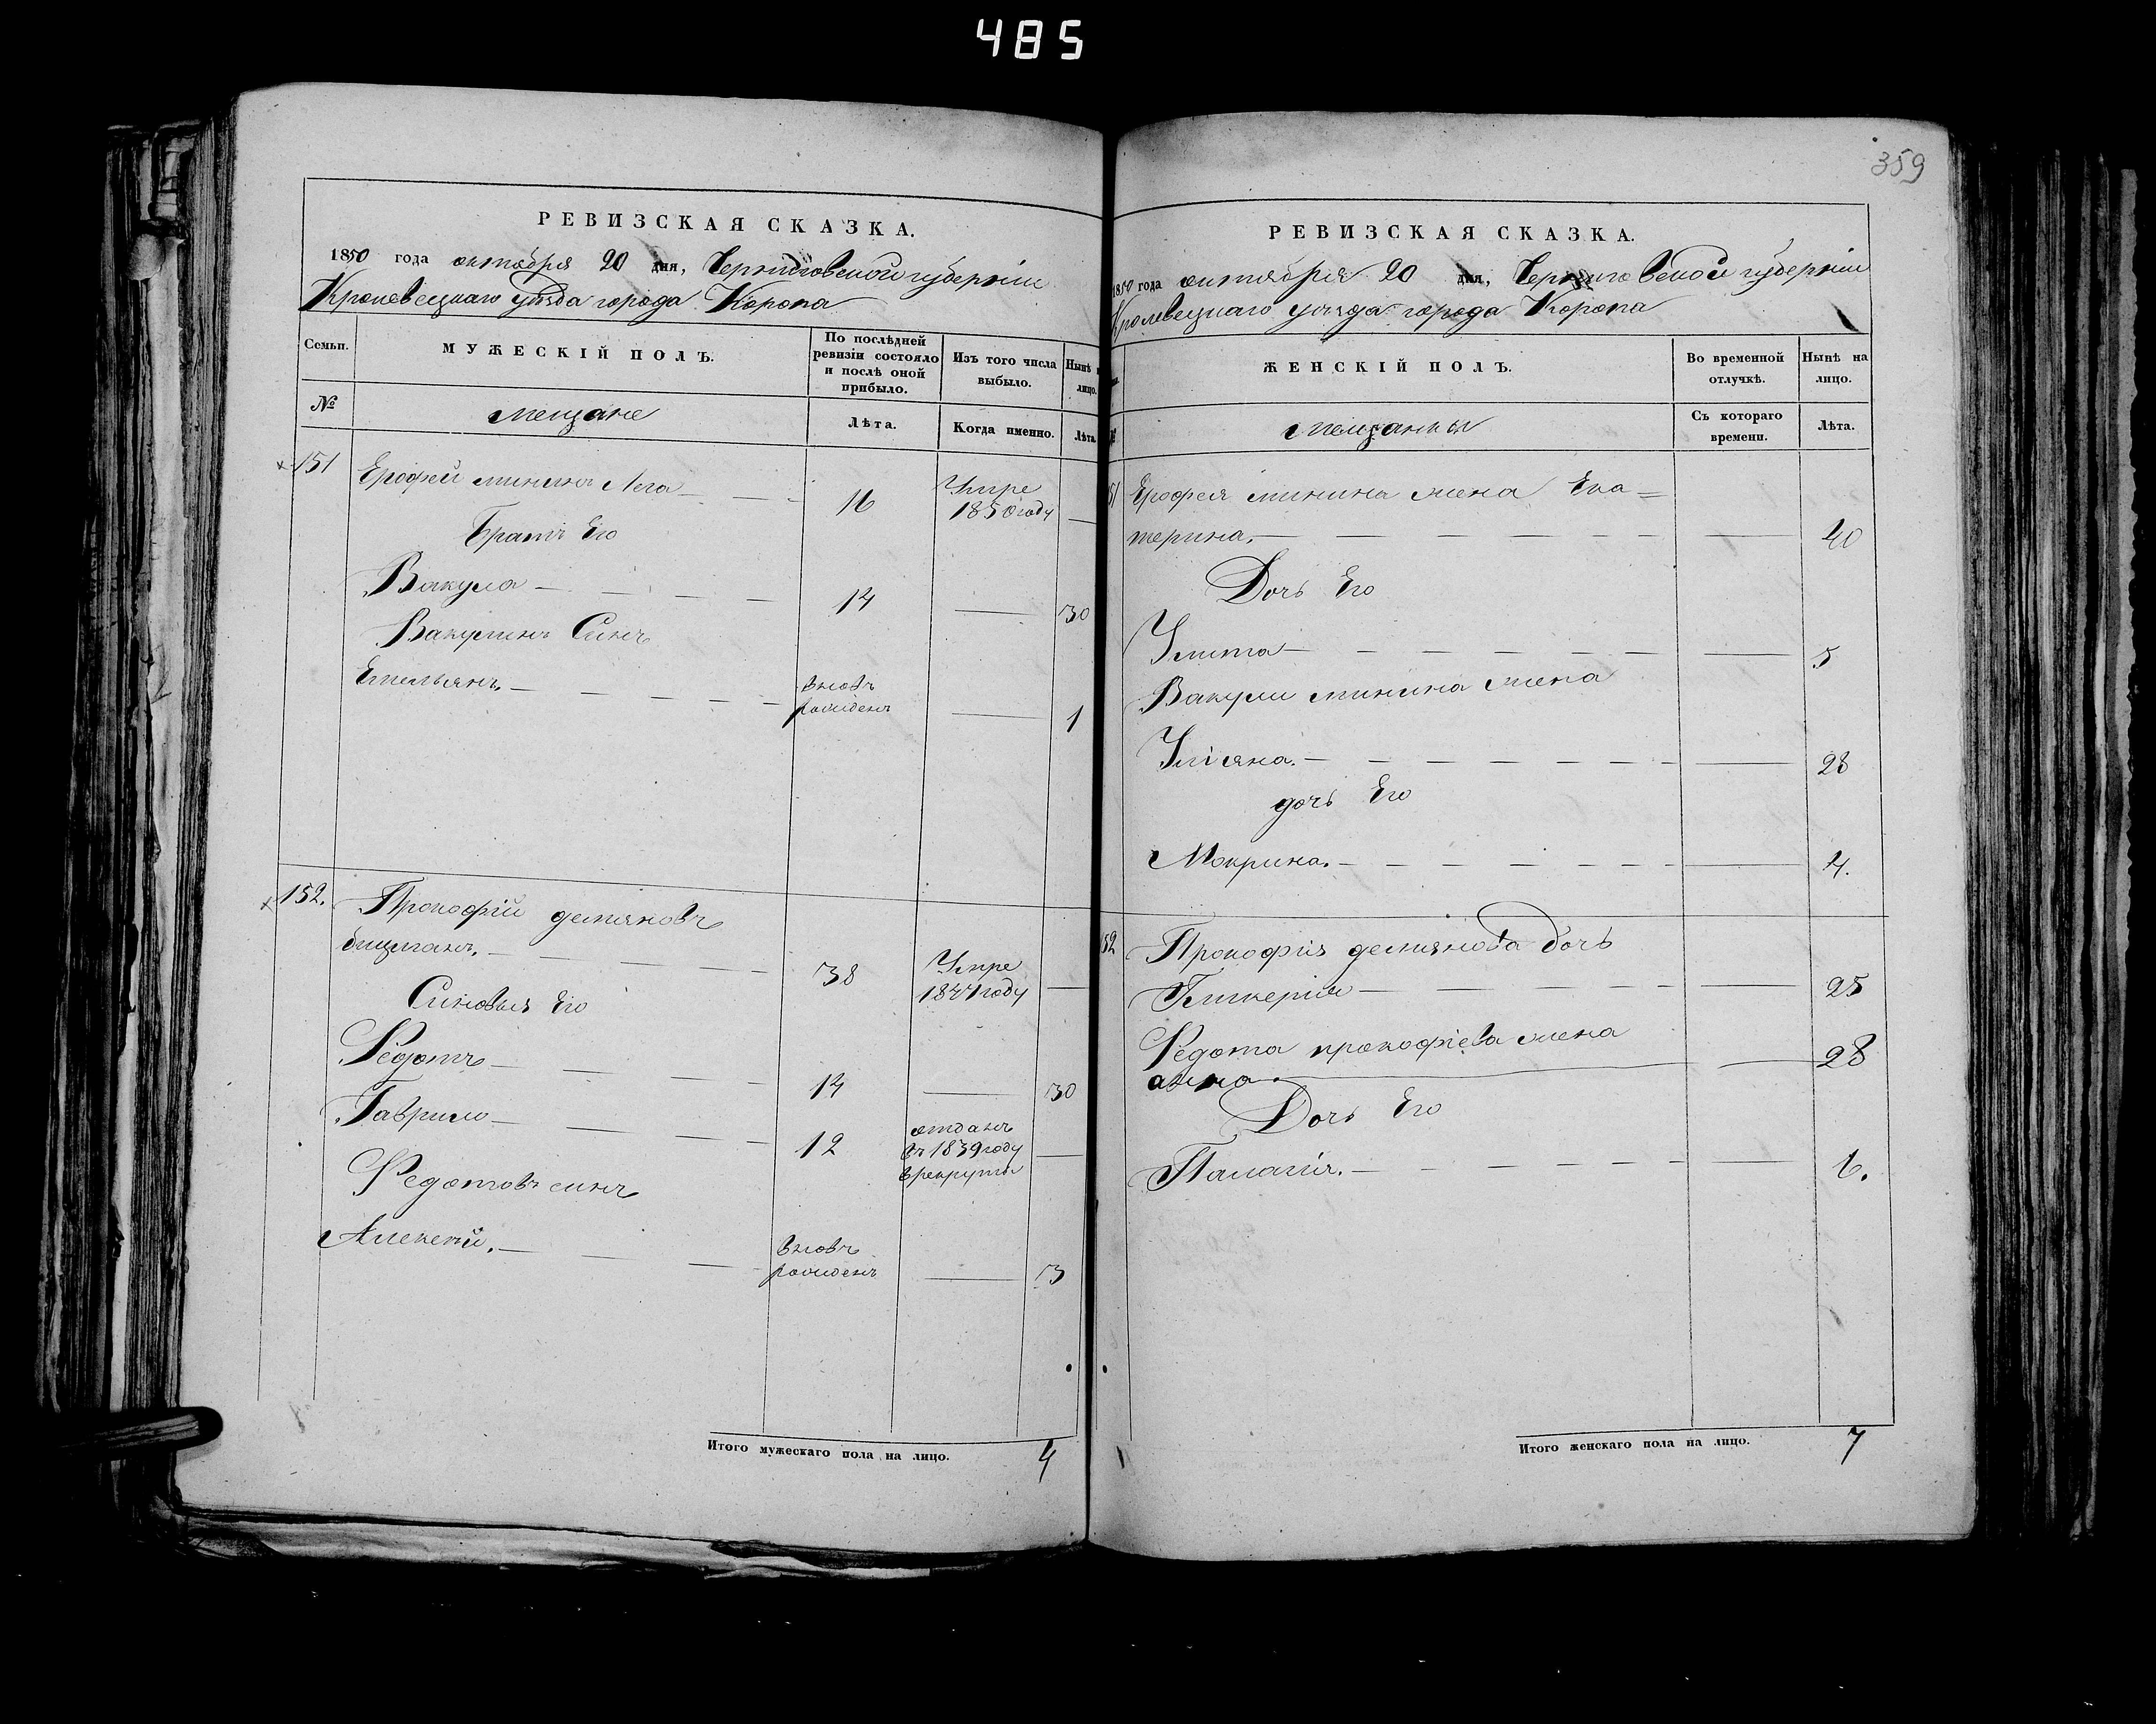 485
359
РЕВИЗСКАЯ СКАЗКА.
1850 года октября 20 дня, Черниговской губернїи
Кролевецкаго уѣзда города Коропа
Семьи.
МУЖЕСКІЙ ПОЛЪ.
По послѣдней ревизіи состояло и послѣ оной прибыло.
Изъ того числа выбыло.
Нынѣ
лицо.
№
мещане
Лѣта.
Когда именно.
Лѣта.
151
Ерофей мининъ Лега
16
Умре
1850 году
Братъ Его
Вакула
14
30
Вакулинъ Синъ
Емельянъ.
вновъ
рожденъ
1
152.
Прокофій демяновъ
38
Умре
1844 году
Синовья Его
Федотъ
14
30
Гаврило
12
отданъ
въ 1839 году
в рекруты
Федотовъ синъ
Алексей.
вновъ
рожденъ
3
Итого мужескаго пола на лицо.
4
РЕВИЗСКАЯ СКАЗКА.
1850 года октября 20 дня, Черниговской губернїи
Кролевецкаго уѣзда города Коропа
ЖЕНСКІЙ ПОЛЪ.
Во временной отлучкѣ.
Нынѣ на лицо.
мещанки
Съ котораго времени.
Лѣта.
51
Ерофея минина жена Ека=
терина.
40
Дочь Его
Улита
5
Вакули минина жена
Уліяна.
28
дочь Его
Мокрина.
4.
152
Прокофія демянова дочь
Гликерия
25
Федота прокофіева жена
анна.
28
Дочь Его
Палагія.
6.
Итого женскаго пола на лицо.
7